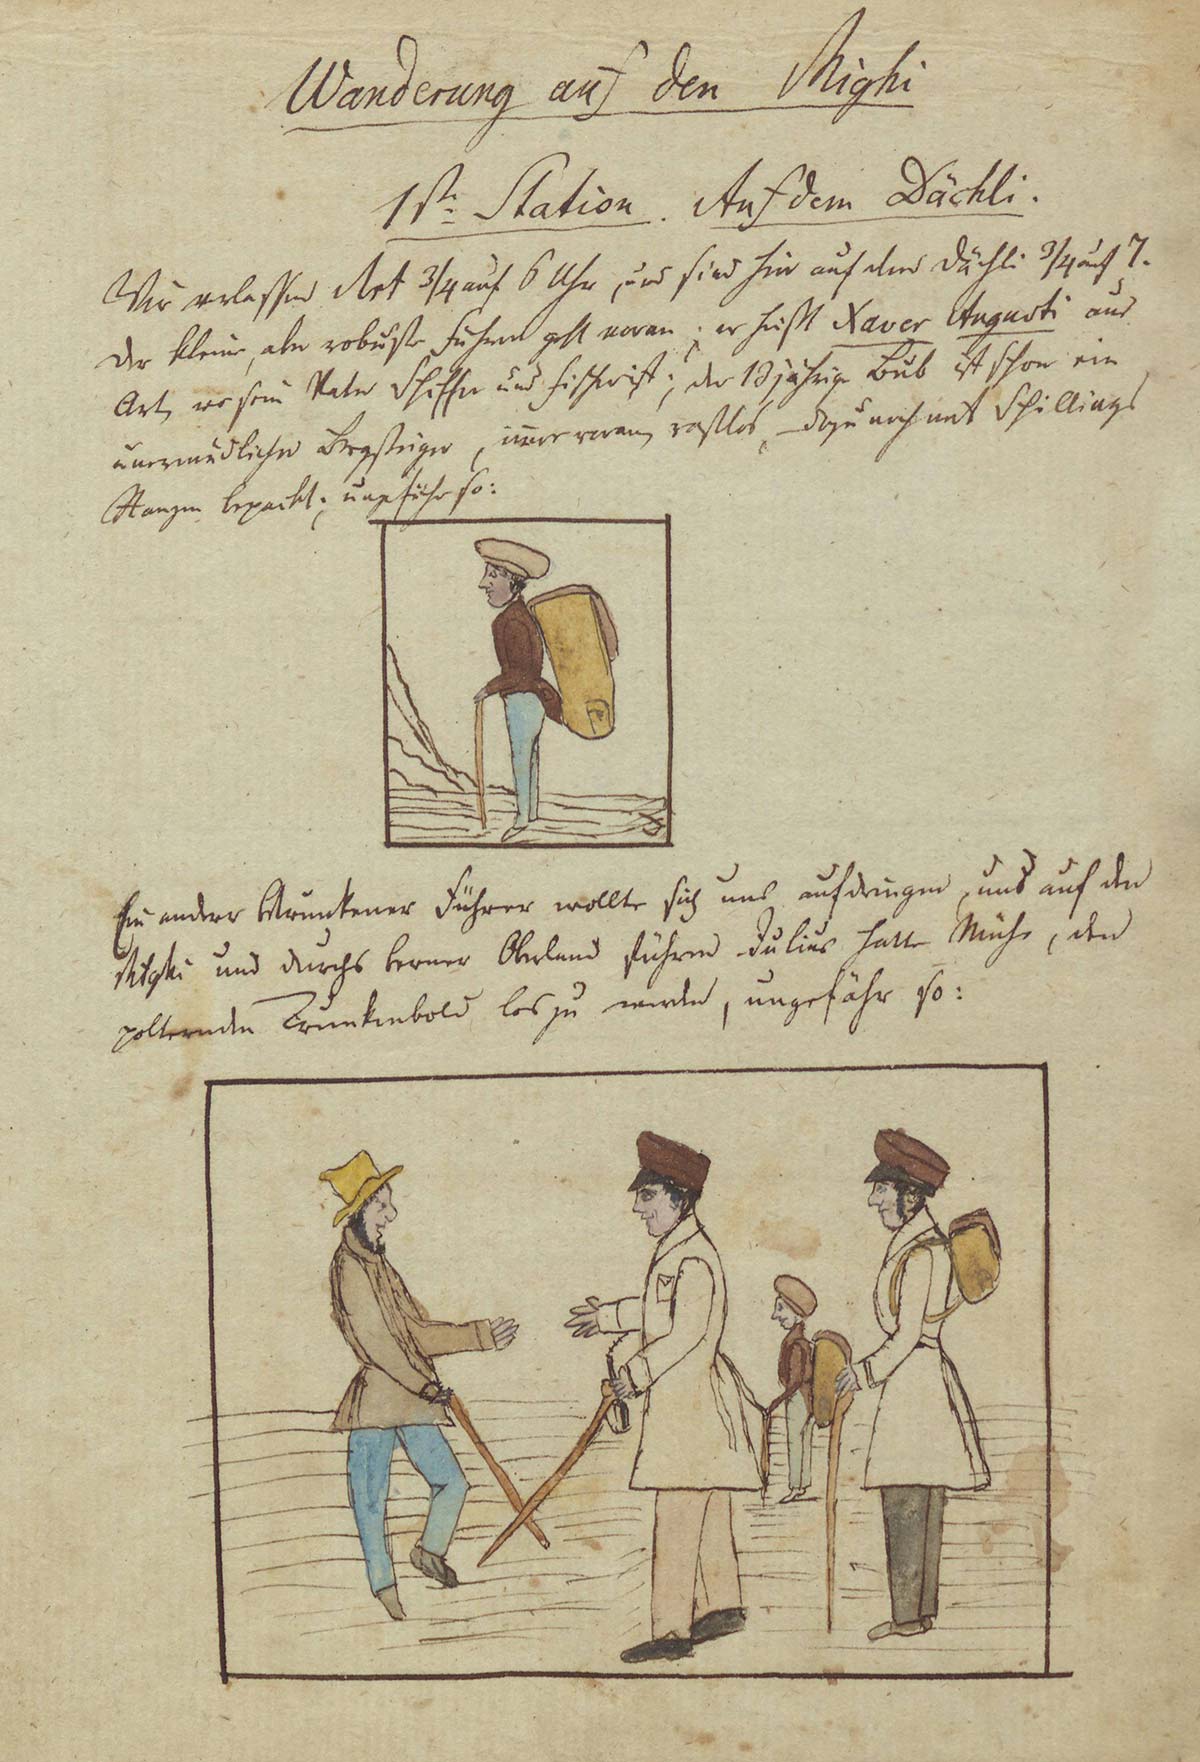 Wanderung auf den Righi
1ste Station. Auf dem Dächli.
Wir verlassen Art 3/4 auf 6 Uhr, und sind hier auf dem Dächli 3/4 auf 7.
Der kleine, aber robuste Führer geht voran; er heißt Xaver Augusti aus
Art, wo sein Vater Schiffer und Fischer ist; der 13jährige Bub ist schon ein
unermüdlicher Bergsteiger, immer voran, rastlos, dazu noch mit Schillings
Ranzen bepackt; ungefähr so:
Ein anderer betrunkener Führer wollte sich uns aufdringen, uns auf den
Righi und durchs berner Oberland führen Julius hatte Mühe, den
polternden Trunkenbold los zu werden, ungefähr so: